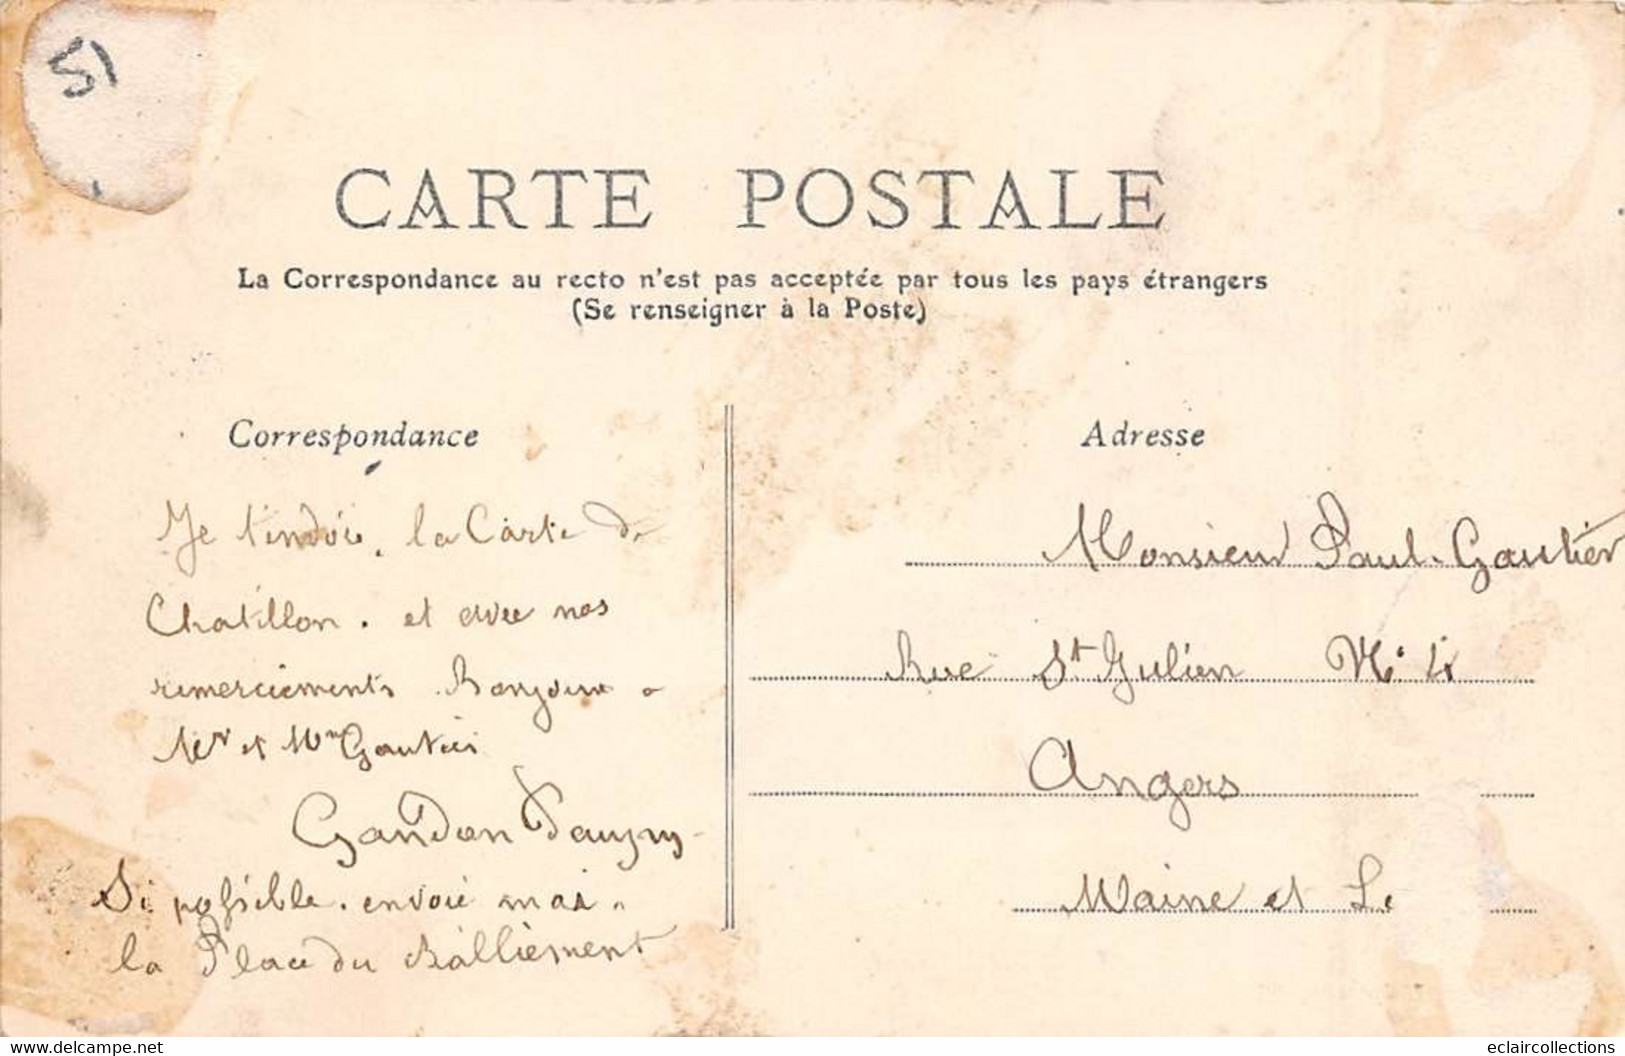 51
CARTE POSTALE
La Correspondance au recto n'est pas acceptée par tous les pays étrangers
(Se renseigner à la Poste)
Correspondance
Je la Carte de
Chatillon. et avec nos
remerciements Bonjour a
Mr et Mme Gautier
Gandon
Si possible. envoie moi
la Place du Ralliement
Adresse
Monsieur Paul Gautier
Rue St Julien No 4
Angers
Maine et L
www.delcampe.net
eclaircollections